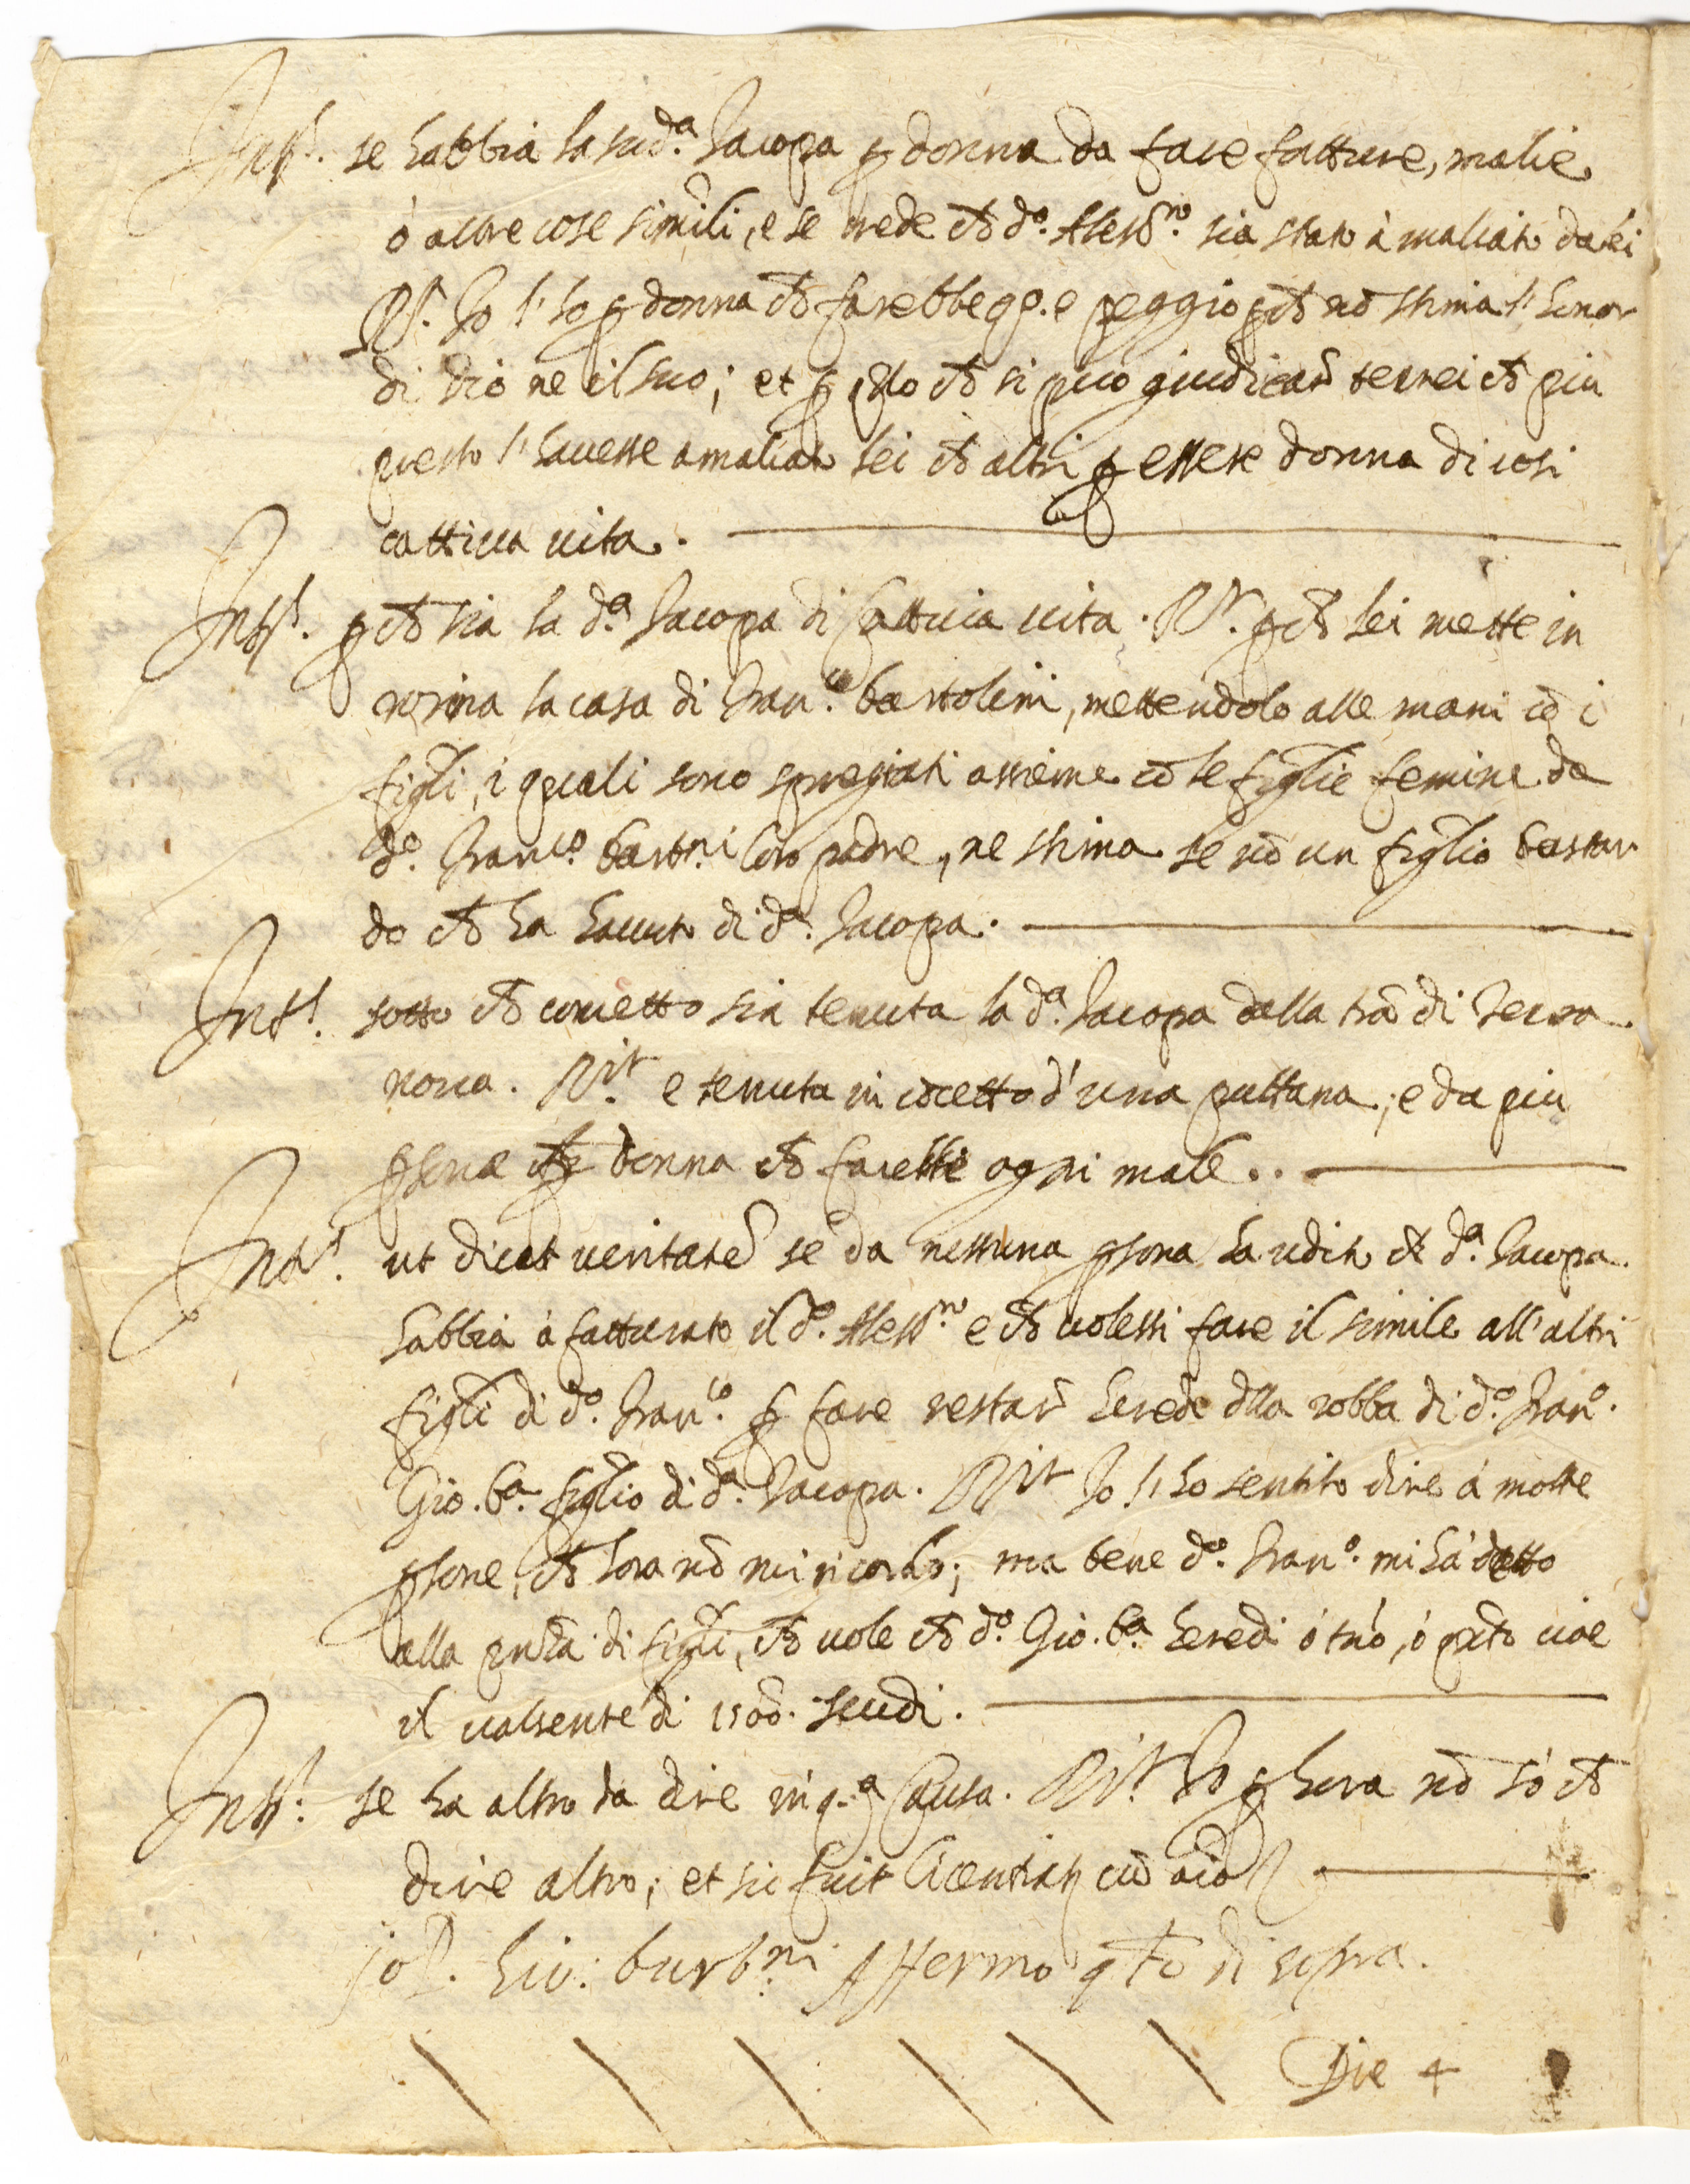 Int.s se habbia la sud.a Jacopa p donna da fare fatture, malie
ò altre cose simili, e se crede ch d.o Aless.ro sia stato à maliato da lei
R.t Io l'ho p donna ch farebbe q.o e peggio pch nō stima l'honor
di Dio ne il suo; et p qllo ch si può giudicar terrei ch piu
presto l'havesse amaliato lei ch altri p essere donna di cosi
cattiva vita.
Int.s pch sia la d.a Jacopa di Cattiva vita. R.t pch lei mette in
rovina la casa di Fran.co bartolini, mettendolo alle mani cō i
figli, i quali sono spregiati assieme cō le figlie femine da
d.o Franc.o bart.ni loro padre, ne stima se nō un figlio bastar
do ch ha havuto di d.a Jacopa.
Int.s sotto ch concetto sia tenuta la d.a Jacopa dalla trā di Serra
nova. R.it e tenuta in cōcetto d'una puttana, e da piu
psone p donna ch farebbe ogni male..
Int.s ut dicat veritatē se da nessuna psona ha udito ch d.a Jacopa
habbia à fatturato il d.o Aless.ro e ch volessi fare il simile all'altri
figli di d.o Fran.co p fare restar herede dlla robba di d.o Fran.o
Gio. b.a figlio di d.a Jacopa. R.it Io l'ho sentito dire à molte
psone, ch hora nō mi ricordo; ma bene d.o Fran.o mi hà detto
alla pn̄za di figli, ch vole ch d.o Gio. b.a heredi cioe
il valsente di 1500. scudi.
Int.s se ha altro da dire in q.a Causa. R.it Io p hora nō sò ch
dire altro; et sic fuit licentiat cū
Io liv: burb.ni Affermo qto di sopra.
Die 4